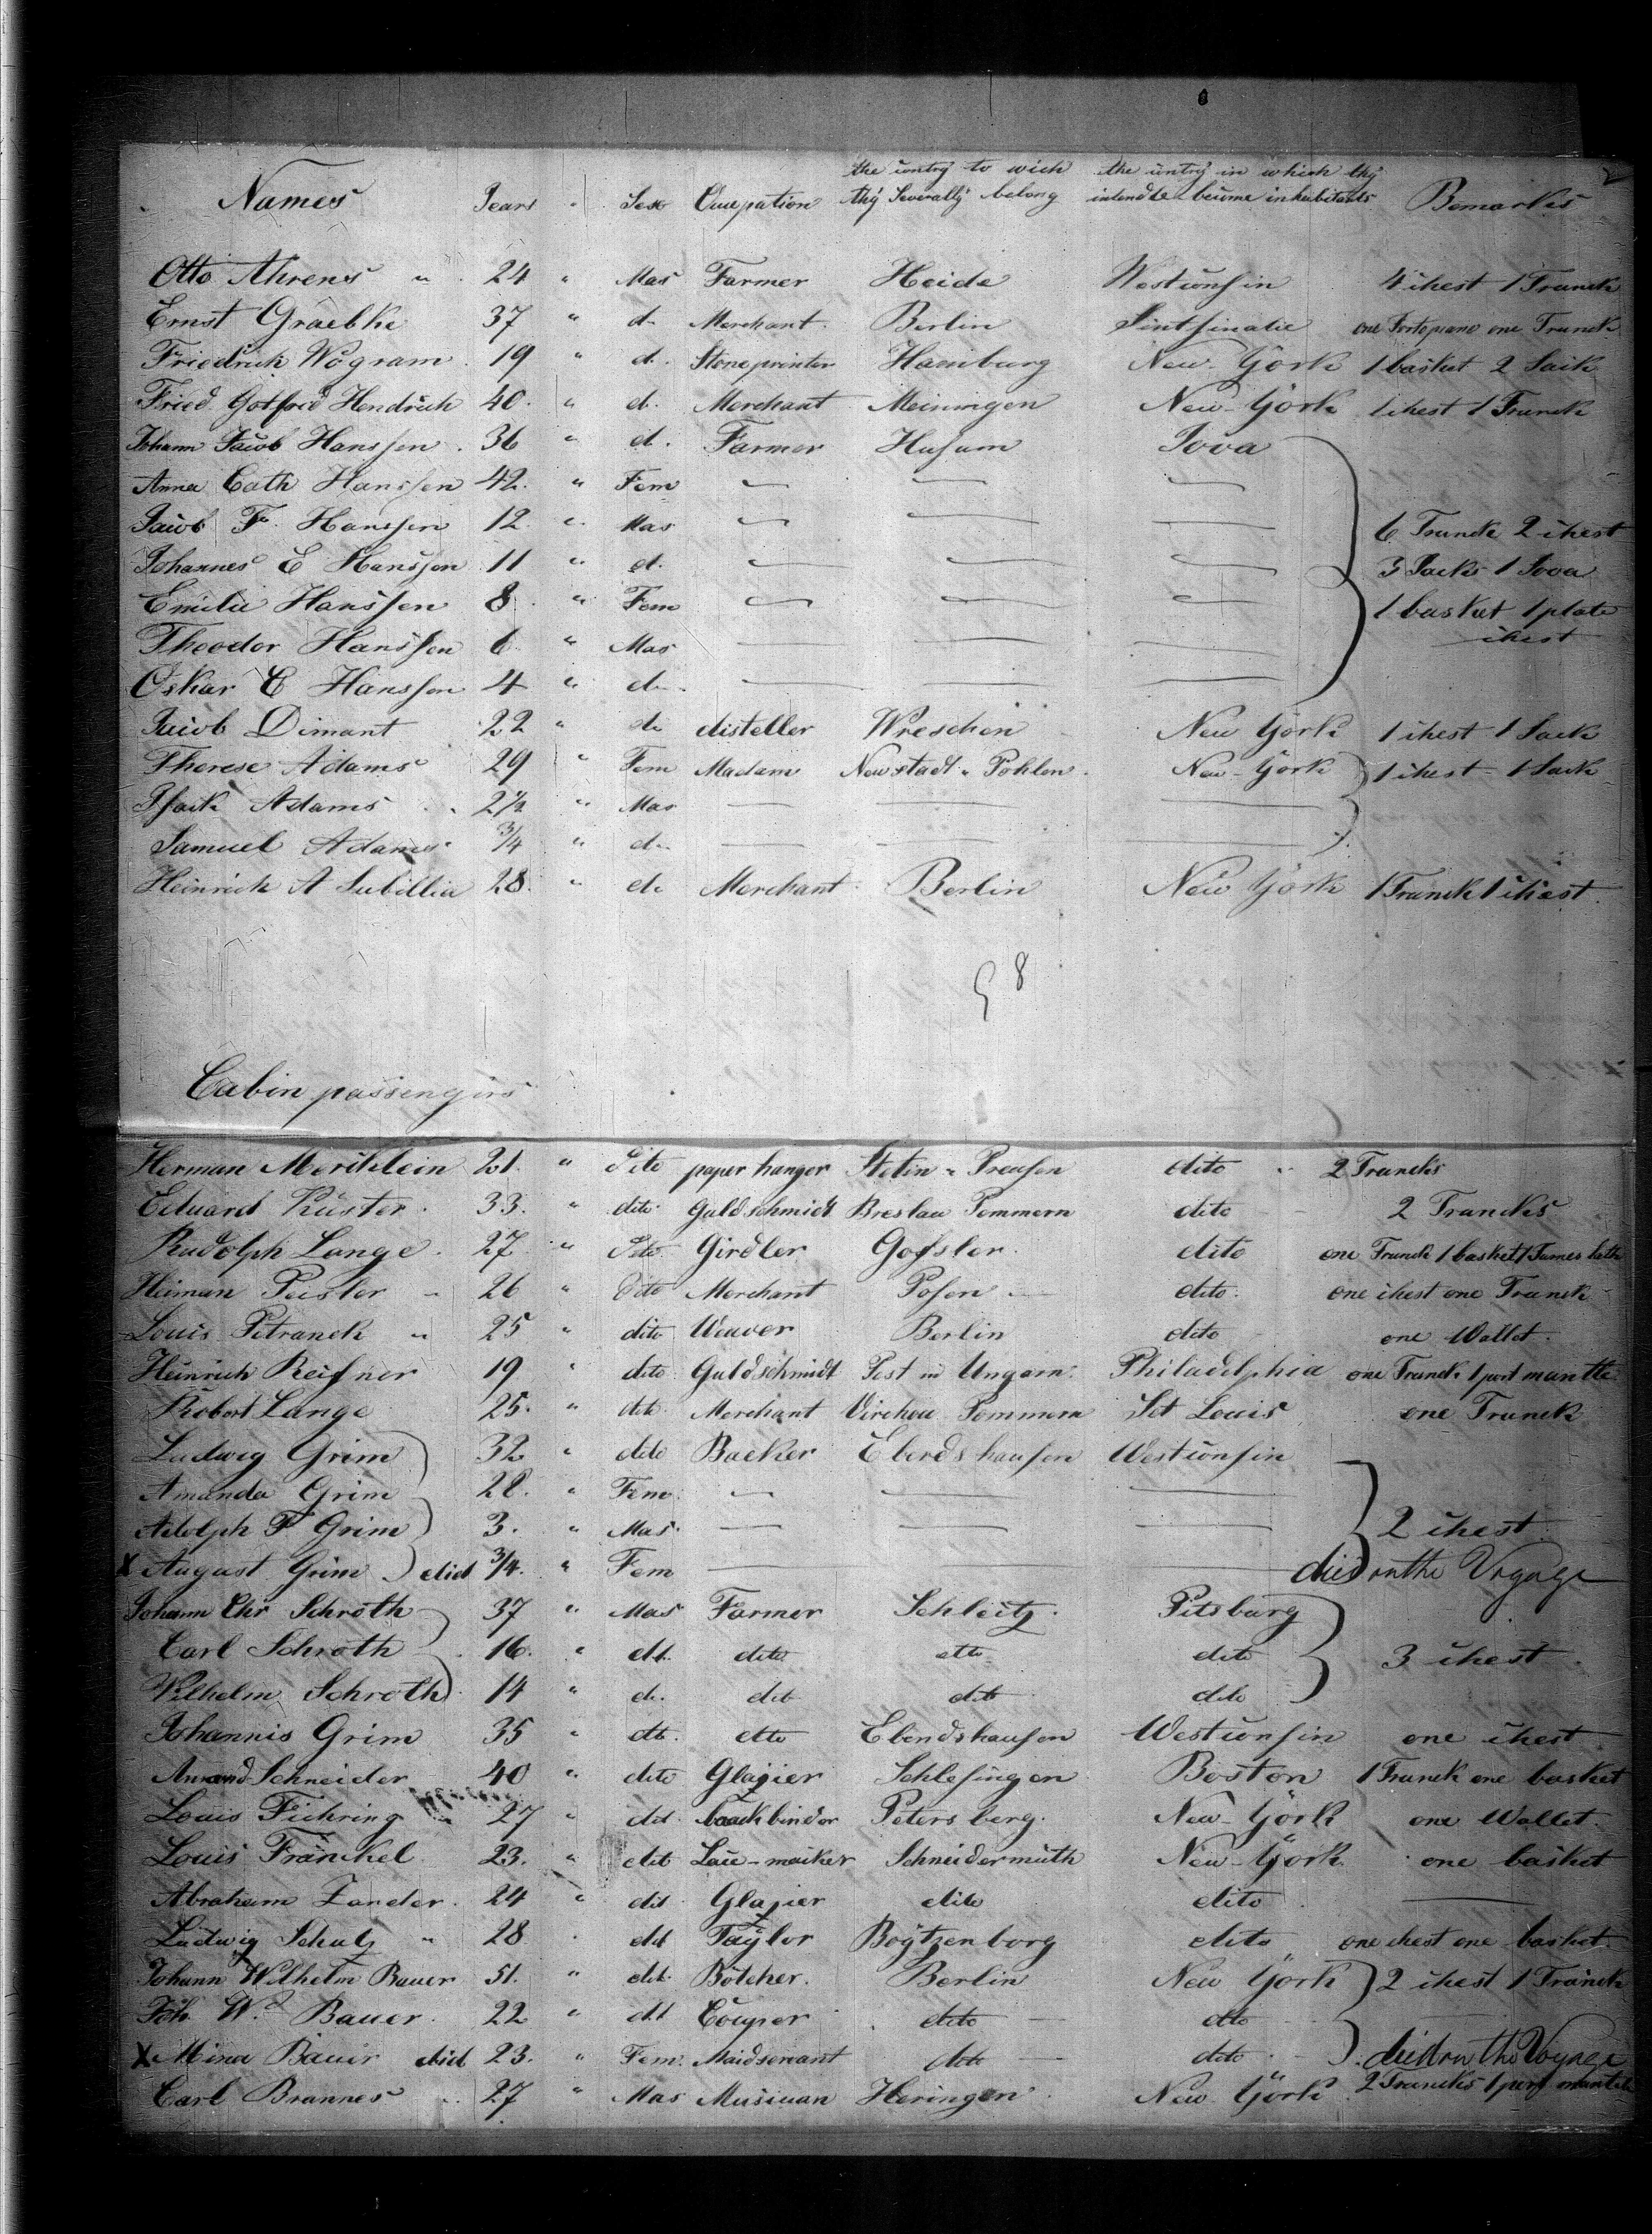 the contry to wich the contry in which thy
Names Years " Sex Occupation thy Severally belong intend to become inhabitants Remarks
Otto Ahrens " 24 " Mas Farmer Heide Westconsin 4 chest 1 Trunck
Ernst Graebke 37 " d. Merchant Berlin Sintsinatie one Fortopiano one Trunck
Friedrich Wogram 19 " d. Stoneprinter Hamburg New-York 1 basket 2 Sack
Fried. Gotfried Hendrich 40 " d. Merchant Meiningen New-York 1 chest 1 Trunck
Johann Jacob Hanssen 36 " d. Farmer Husum Iova
Anna Cath Hanssen 42 " Fem
Jacob F. Hanssen 12 " Mas 6 Trunck 2 chest
Johannes E Hanssen 11 " d. 3 Sacks 1 Sova
Emilie Hanssen 8 " Fem 1 basket 1 plate
Theodor Hanssen 6 " Mas chest
Oskar C Hanssen 4 " d.
Jacob Dimant 22 " do disteller Wreschen New York 1 chest 1 Sack
Therese Adams 29 " Fem Madam Newstadt " Pohlen New-York 1 chest 1 Sack
Isaik Adams 2½ " Mas
Samuel Adams ¾ " d.
Heinrich A Subillia 28 " do Merchant Berlin New York 1 Trunck 1 chest
98
Cabin passengirs
Herman Meriklein 21 " Dito paper hanger Stetin " Preusen dito " 2 Truncks
Eduard Küster 33 " dito Guldschmidt Breslau Pommern dito 2 Truncks
Rudolph Lange 27 " Dito Girdler Gossler dito one Trunck 1 basket 1
Heiman Peisler 26 " Dito Merchant Posen dito one chest one Trunck
Louis Petranck " 25 " dito Weaver Berlin dito one Wallet
Heinrich Reisner 19 " dito Guldschmidt Pest in Ungarn Philadelphia one Trunck 1 port mantle
Robert Lange 25 " dito Merchant Virchow Pommern Set Louis one Trunck
Ludwig Grim 32 " dito Backer Eberdshausen Westconsin
Amanda Grim 28 " Fem
Adolph F Grim 3 " Mas 2 chest
X August Grim died ¾ " Fem died onthe Voyage
Johann Chr Schroth 37 " Mas Farmer Schleitz Pitsburg
Carl Schroth 16 " dt. dito dtto dito 3 chest
Wilhelm Schroth 14 " d. dito dito dito
Johannis Grim 35 " dt. dtto Ebendshausen Westconsin one chest
Schneider 40 " dito Glazier Schlesingen Boston 1 Trunck one basket
Louis Fichring 27 " dit bookbinder Petersberg New-York one Wallet
Louis Fränckel 23 " dito Lace-maicker Schneidermuth New-York one basket
Abraham Zander 24 " dit Glazier dito dito
Ludwig Schulz " 28 " dit Taylor Boytzenborg dito one chest one basket
Johann Wilhelm Bauer 51 " dit Bötcher Berlin New York 2 chest 1 Tranck
Joh. Wm Bauer 22 " dit Couper dito dto
X Mina Bauer died 23 " Fem. Maidservant dito dito died on the Voyage
Carl Brannes 27 " Mas Musician Heringen New York 2 Truncks 1 port mantle